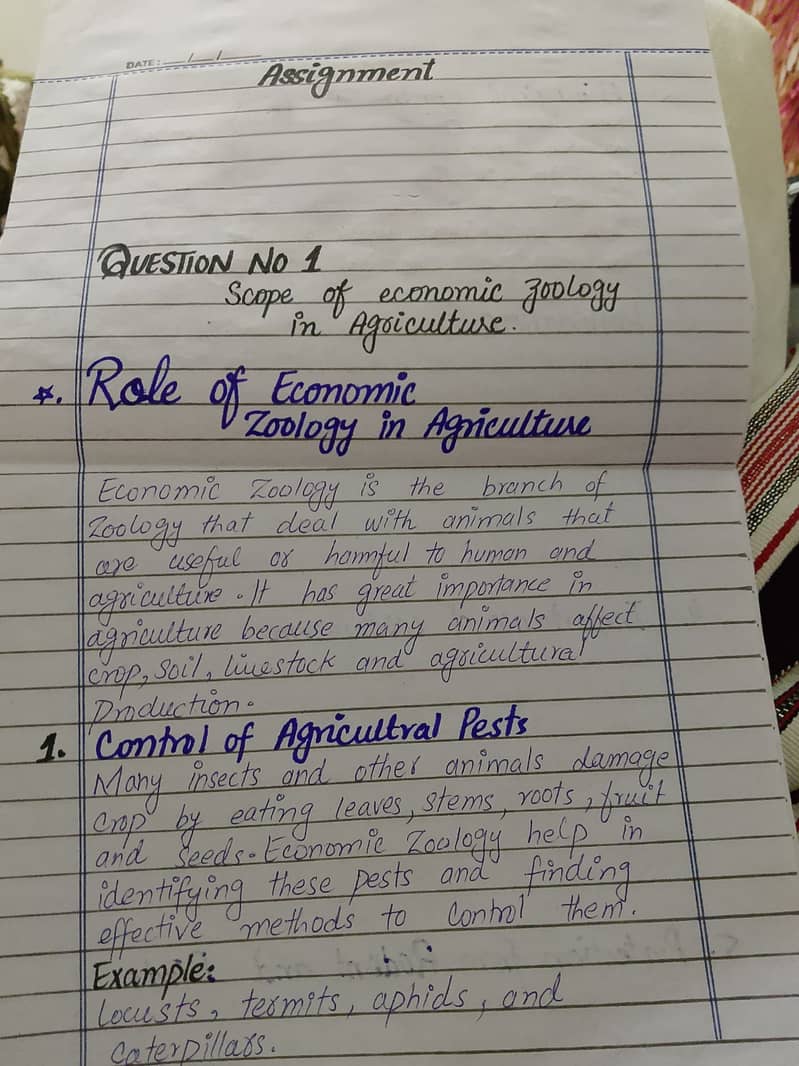 DATE: __/__/____
Assignment
QUESTION NO 1
Scope of economic zoology
in Agriculture.
*. Role of Economic
Zoology in Agriculture
Economic Zoology is the branch of
Zoology that deal with animals that
are useful or harmful to human and
agriculture. It has great importance in
agriculture because many animals affect
crop, soil, livestock and agricultural
Production.
1. Control of Agricultral Pests
Many insects and other animals damage
crop by eating leaves, stems, roots, fruit
and seeds. Economic Zoology help in
identifying these pests and finding
effective methods to control them.
Example:
Locusts, termits, aphids, and
Caterpillars.